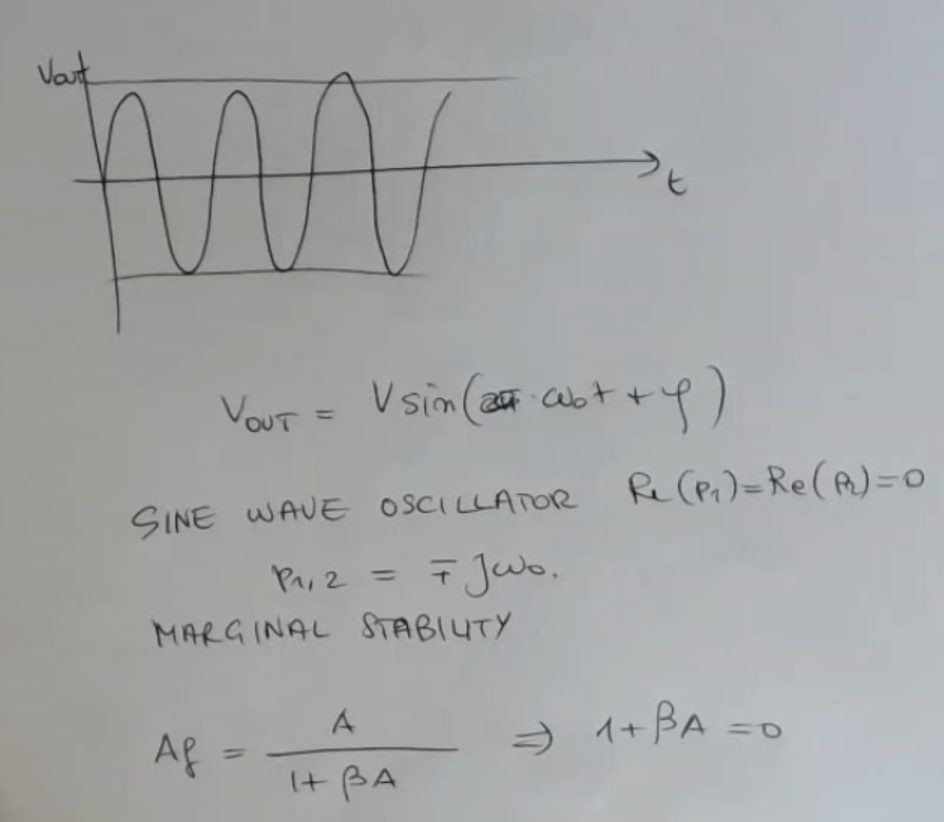 Vout
t
V_OUT = V sin( ω₀t + φ )
SINE WAVE OSCILLATOR Re(p₁)=Re(p₂)=0
p₁,₂ = ∓ jω₀.
MARGINAL STABILITY
Af = A / (1+βA) ⇒ 1+βA = 0